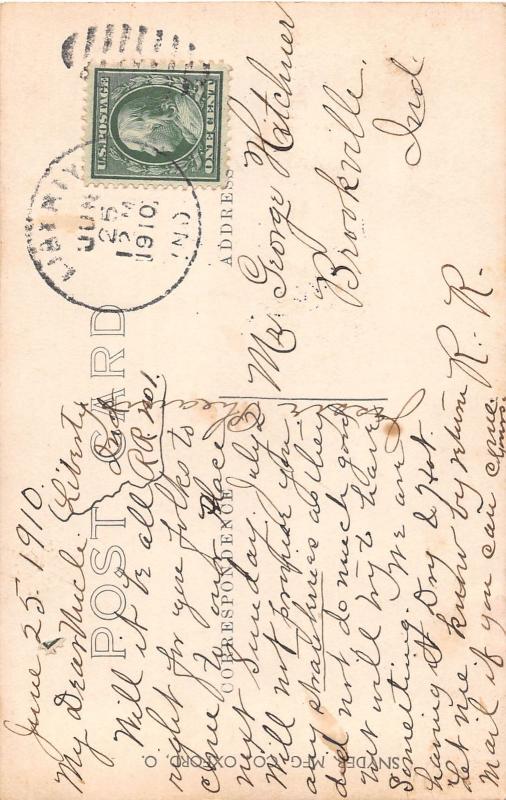 POST CARD
CORRESPONDENCE
ADDRESS
SNYDER MFG. CO. OXFORD, O.
U.S. POSTAGE
ONE CENT
LIBERTY
JUN
25
1910
IND
June 25 1910
Liberty Ind
RR no 1.
My Dear Uncle.
Will it be all
right for you folks to
come to our place
next Sunday. July 2
Will not promise you
any strawberries as they
did not do much good
but will try & have
Something. We are
having it Dry & Hot.
Let me know by return
Mail if you can come
R. R.
Mr George Hatchner
Brookville.
Ind.